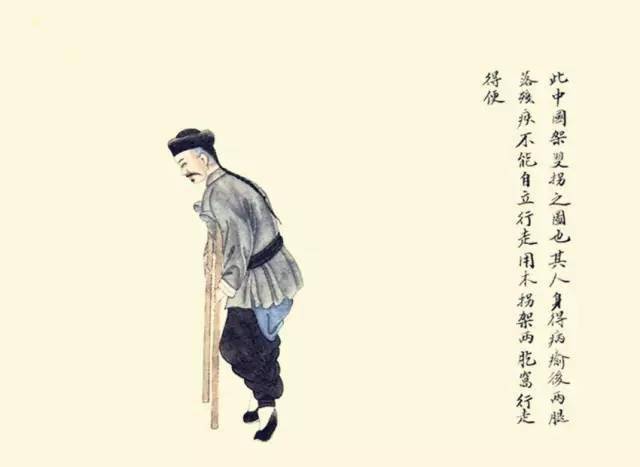 此中國架雙拐之圖也其人身得病瘉後兩腿
落殘疾不能自立行走用木拐架兩肐窩行走
得便